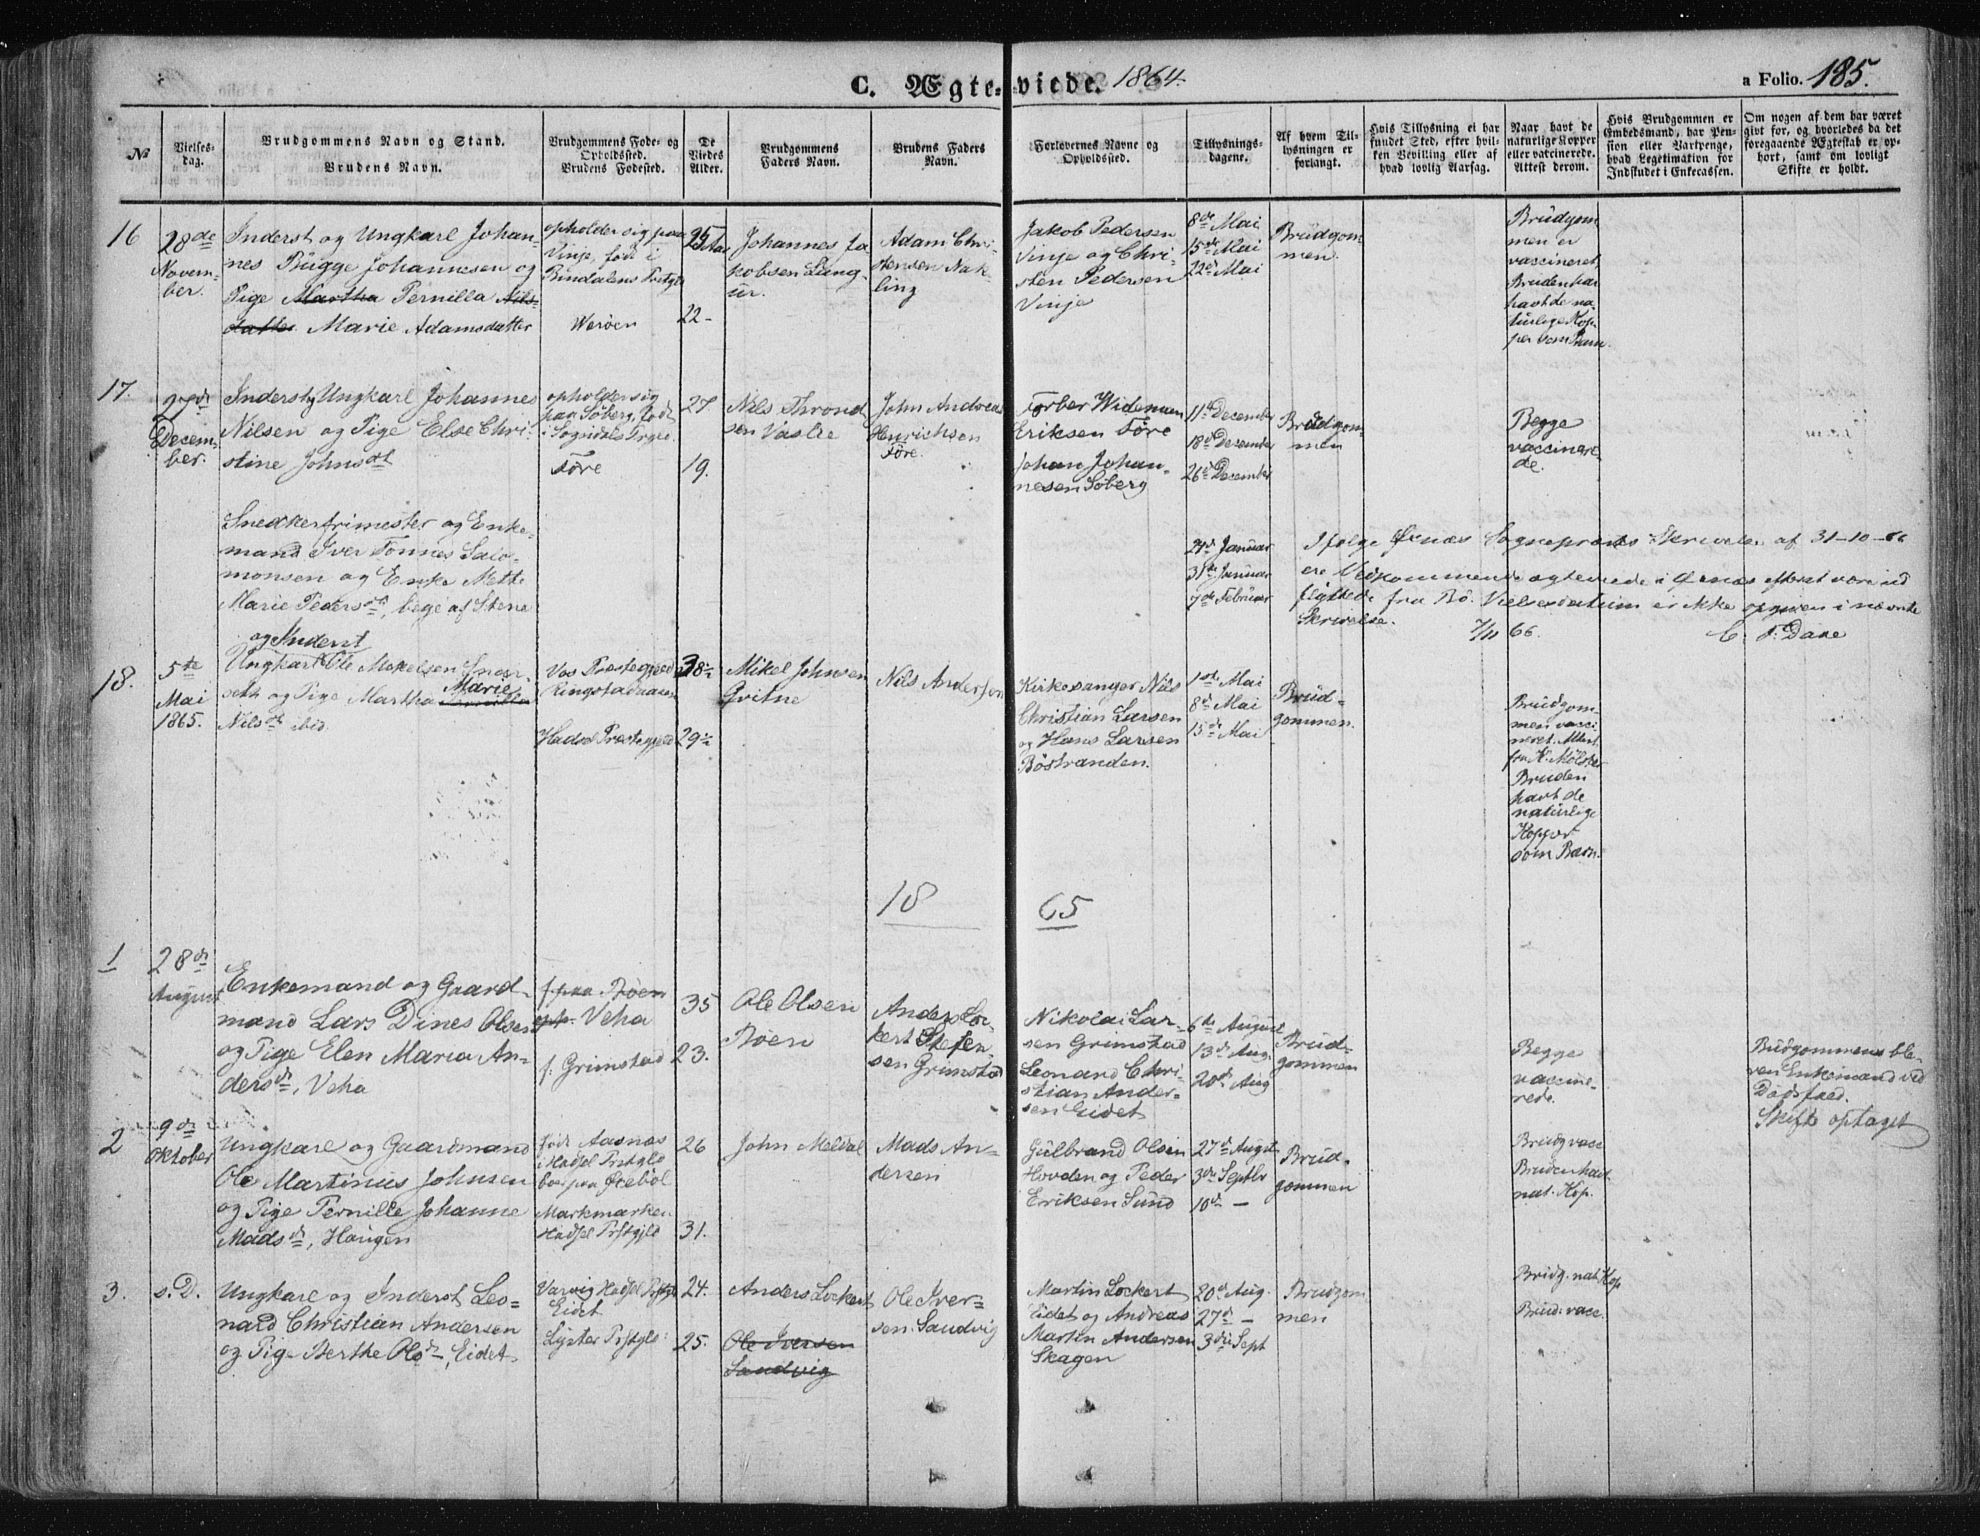 C. Ægte-viede. 1864.
a Folio. 185.
№
Vielses-
dag.
Brudgommens Navn og Stand.
Brudens Navn.
Brudgommens Føde- og
Opholdssted.
Brudens Fødested.
De
Viedes
Alder.
Brudgommens
Faders Navn.
Brudens Faders
Navn.
Forlovernes Navne og
Opholdssted.
Tillysnings-
dagene.
Af hvem Til-
lysningen er
forlangt.
Hvis Tillysning ei har
fundet Sted, efter hvil-
ken Bevilling eller af
hvad lovlig Aarsag.
Naar havt de
naturlige Kopper
eller vaccinerede.
Attest derom.
Hvis Brudgommen er
Embedsmand, har Pen-
sion eller Vartpenge,
hvad Legitimation for
Indskudet i Enkecassen.
Om nogen af dem har været
givt for, og hvorledes da det
foregaaende Ægteskab er op-
hørt, samt om lovligt
Skifte er holdt.
16
28de
Novem-
ber.
Inderst og Ungkarl Johan-
nes Bügge Johannesen og
Pige Martha Pernilla Nils-
datter Marie Adamsdatter
opholder sig paa
Vinje, født i
Bindalens Prstgld
Værøen
25 Aar
22-
Johannes Ja
kobsen Lang
ür.
Adam Chri-
stensen Nak-
ling
Jakob Pedersen
Vinje og Chri-
sten Pedersen
Vinje
8de Mai
15de Mai
22de Mai
Brüdgom-
men.
Brüdgom
men er
vaccineret,
Bruden har
havt de na
turlige Kop-
per som Barn.
17.
27de
Decem-
ber.
Inderst og Ungkarl Johannes
Nilsen og Pige Else Chri-
stine Johnsdt
opholder sig
paa Søberg, født
i Sogndals Prgjd.
Føre
27
19.
Nils Thrond
sen
John Andreas
Henrichsen
Føre.
Torber Wideman
Eriksen Føre
Johan Johan-
nesen Søberg
11te December
18de December
26de December
Brüdgom-
men
Begge
vaccinere
de.
Snedkerfrimester og Enke-
mand Iver Tønnes Salo-
monsen og Enke Mette
Marie Pedersdt, bege af Stene
24de Januar
31te Januar
7de Februar
Ifølge Øxnæs Sognepræsts Skrivelse af 31-10-66
ere Vedkommende ægteviede i Øxnæs efterat være ud
flyttede fra Bø. Vielsesdatum er ikke opgiven i nævnte
Skrivelse. 7/11 66. C. F. Daae
18.
5te
Mai
1865.
og Inderst
Ungkarl Ole Mikelsen
sett og Pige Martha Marie Pernilla
Nilsdt ibid.
Vos Præstegjeld
Ringstadaasen
Hadsel Præstegjeld
38
29
Mikel Johnsen
Gvitne
Nils Andersen
Kirkesanger Nils
Christian Larsen
og Hans Larsen
Bøstranden.
1ste Mai
8de Mai
15de Mai
Brüd-
gommen.
Brüdgom-
men vacci
neret. Attest
fra K. Mölster
Bruden
havt de
naturlige
Kopper
som Barn.
18 65
1
28de
August
Enkemand og Gaard-
mand Lars Dines Olsen
og Pige Elen Maria An-
dersdt, Veha
f. paa Bøen
oph. Veha
f. Grimstad
35
23.
Ole Olsen
Bøen
Anders Lo-
kert Stefen-
sen Grimstad
Nikolai Lar-
sen Grimstad
Leonard Chri-
stian Ander-
sen Eidet
6te August
13de Aug.
20de Aug
Brüd-
gommen
Begge
vaccine-
rede.
Budgommens ble-
ven Enkemand ved
Dødsfald.
Skifte optaget
2
9de
Oktober
Ungkarl og Gaardmand
Ole Martinius Johnsen
og Pige Pernille Johanne
Madsdt, Haugen
født Aasnæs
i Hadsel Prstgld
boer paa
Markmarken
Hadsel Prstgjld
26
31.
John Meldal
Mads An-
dersen
Gülbrand Olsen
Hovden og Peder
Eriksen Sünd
27de Augst
3die Septbr
10de -
Brüd-
gommen
Brudg vacc
Bruden havt
nat. Kop.
3.
s. D.
Ungkarl og Inderst Leo-
nard Christian Andersen
og Pige Berthe Olsdt, Eidet
Varvig Hadsel Prstgld
Eidet
Lyster Prstgld
24.
25.
Anders Lockert
Ole Iversen
Sandvig
Ole Iver-
sen Sandvig
Martin Lockert
Eidet og Andreas
Martin Andersen
Skagen
20de Aug.
27de -
3die Sept
Brudgom
men
Brudg. nat Kop
Brud. vacc.